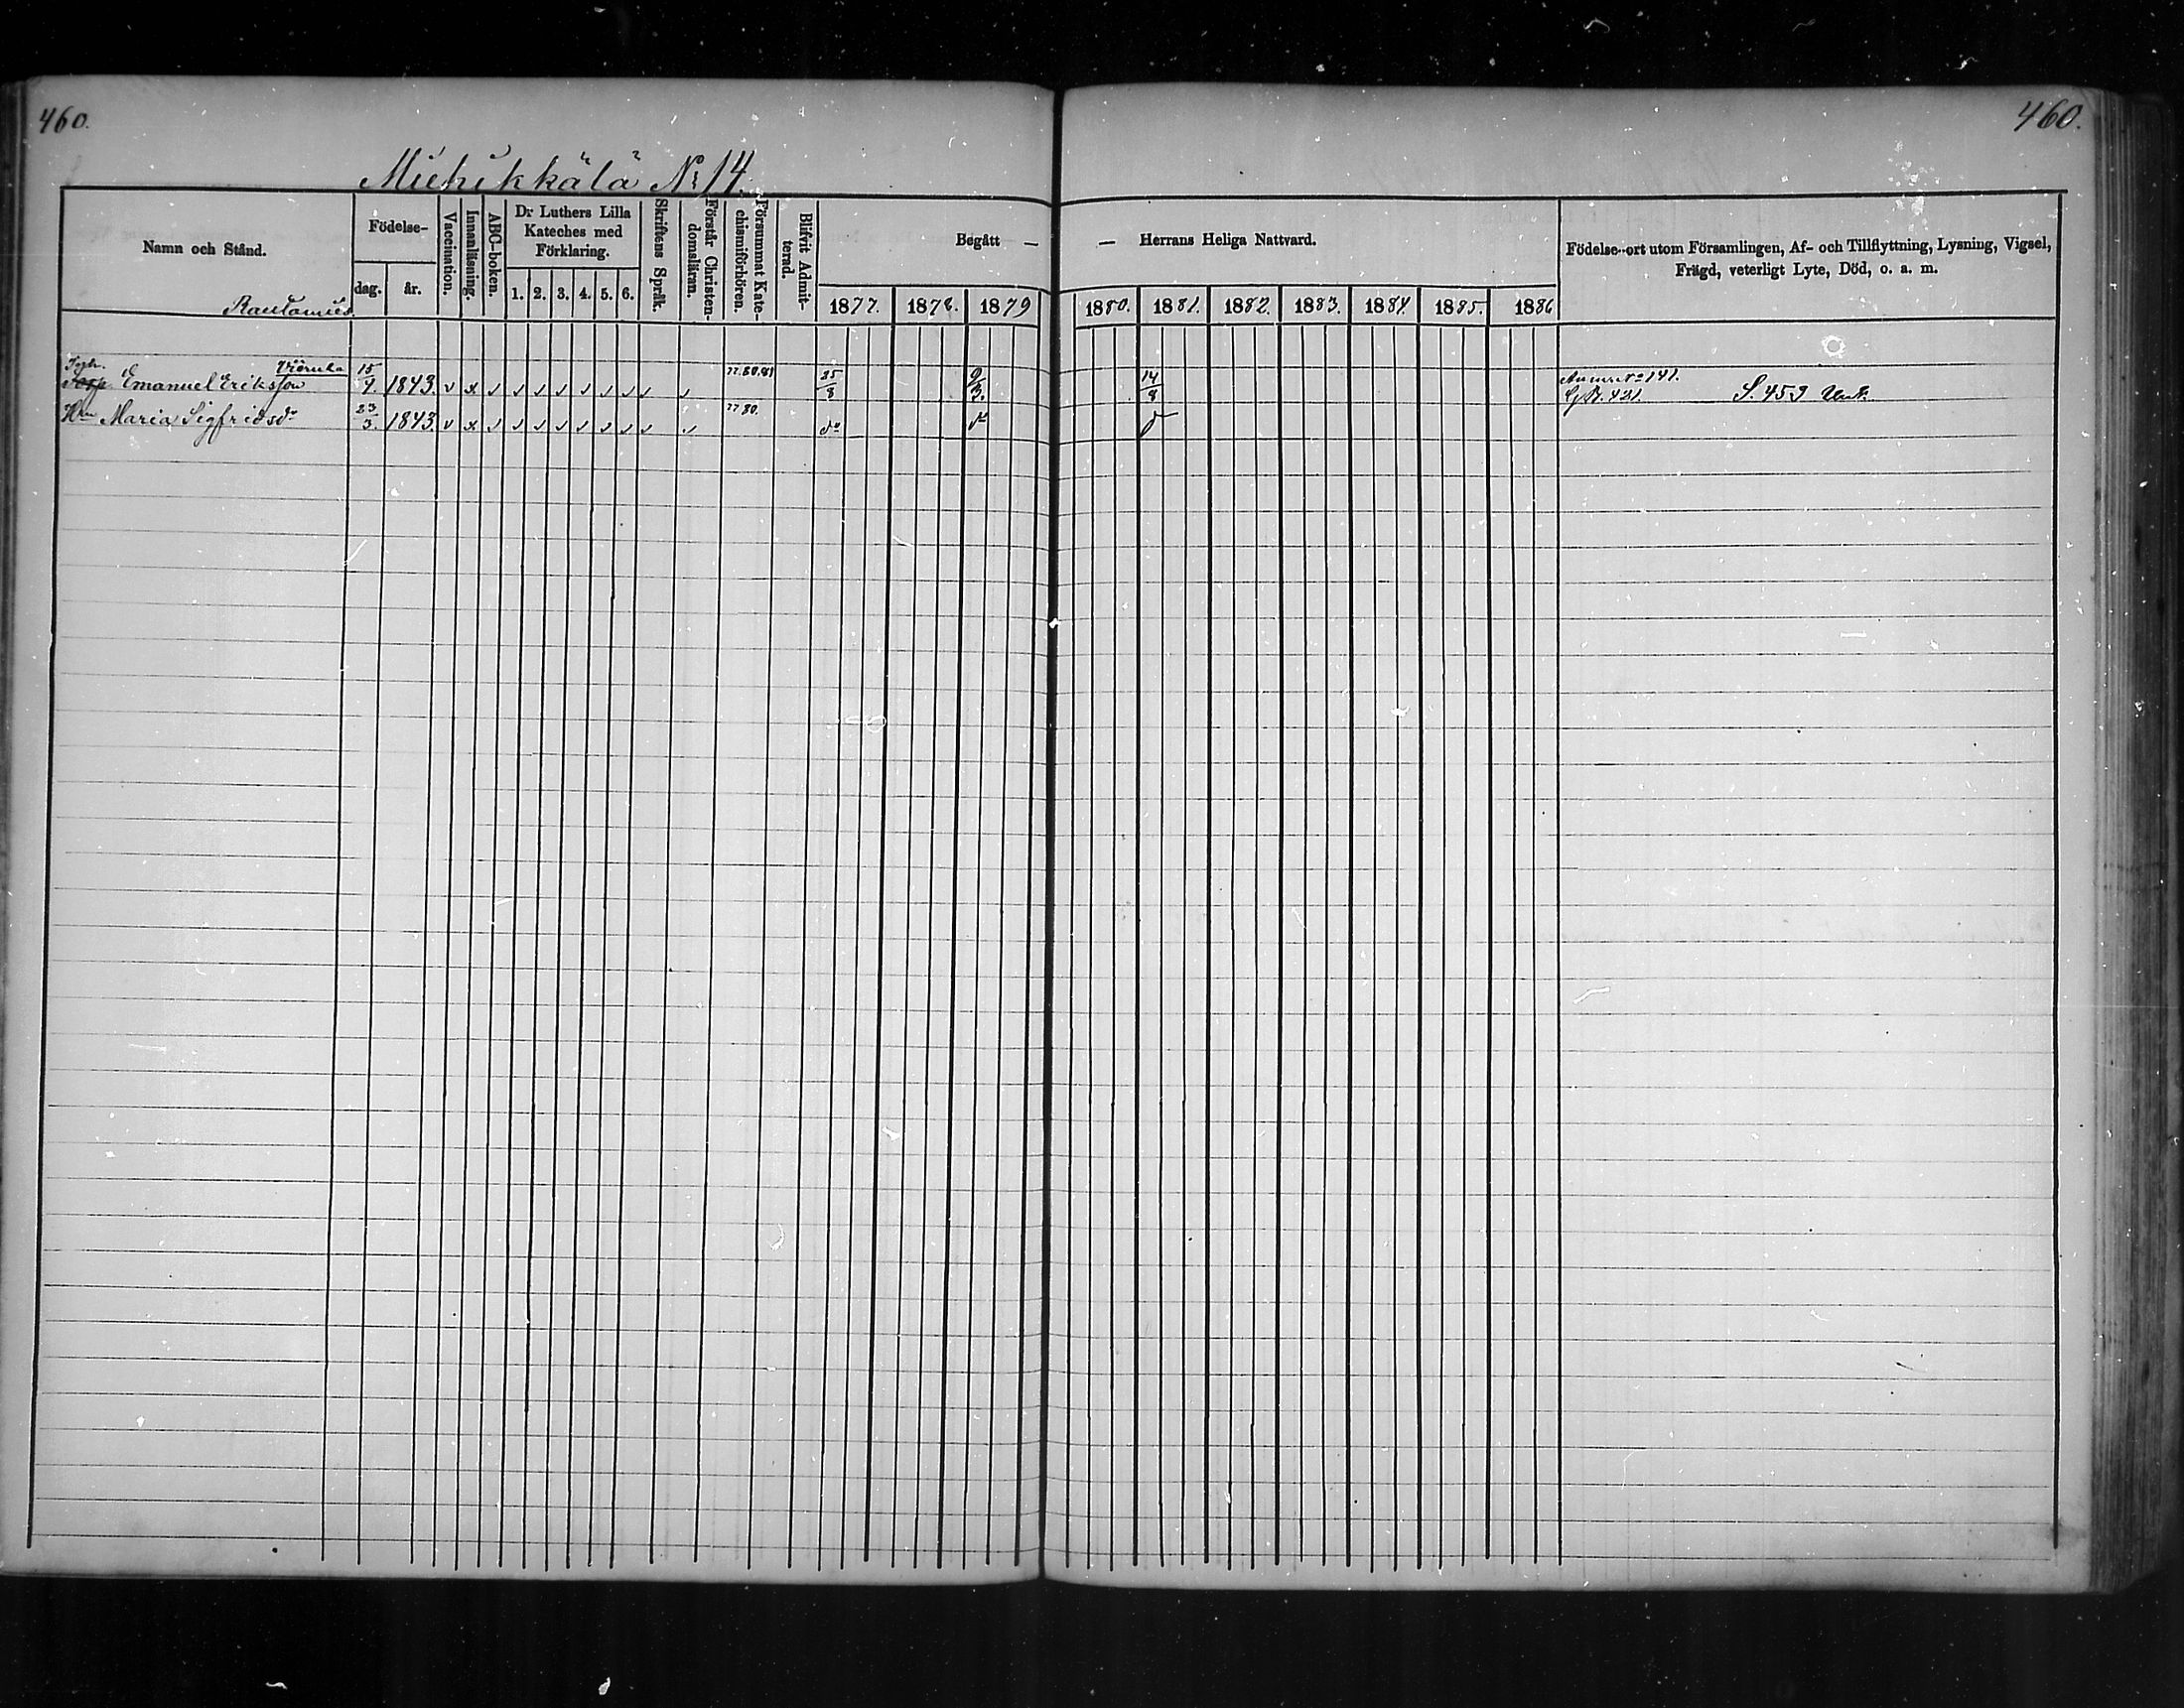 460.
460.
Miehikkälä No 14.
Namn och Stånd.
Födelse-
dag.
år.
Vaccination.
Innanläsning.
ABC-boken.
Dr Luthers Lilla
Kateches med
Förklaring.
1. 2. 3. 4. 5. 6.
Skriftens Språk.
Förstår Christen-
domsläran.
Försummat Kate-
chismiförhören.
Blifvit Admit-
terad.
Begått —
— Herrans Heliga Nattvard.
1877. 1878. 1879 1880. 1881. 1882. 1883. 1884. 1885. 1886
Födelse-ort utom Församlingen, Af- och Tillflyttning, Lysning, Vigsel,
Frägd, veterligt Lyte, Död, o. a. m.
Emanuel Eriksson 15/4. 1843. v x v v v v v v v v v 77.80.81 25/8 9/3. 14/8 141.
431. S. 459
Hu Maria Sigfridsdr 23/3. 1843. v x v v v v v v v v v 77 80. do do